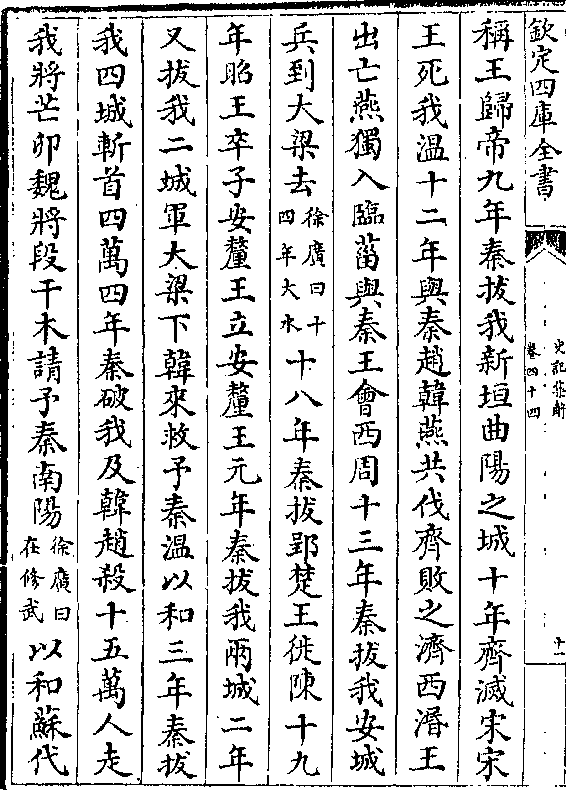 欽定四庫全書
史記集解
卷四十四
十一
稱王歸帝九年秦拔我新垣曲陽之城十年齊滅宋宋
王死我溫十二年與秦趙韓燕共伐齊敗之濟西湣王
出亡燕獨入臨菑與秦王會西周十三年秦拔我安城
兵到大梁去徐廣曰十四年大水十八年秦拔郢楚王徙陳十九
年昭王卒子安釐王立安釐王元年秦拔我兩城二年
又拔我二城軍大梁下韓來救予秦溫以和三年秦拔
我四城斬首四萬四年秦破我及韓趙殺十五萬人走
我將芒卯魏將段干木請予秦南陽徐廣曰在修武以和蘇代